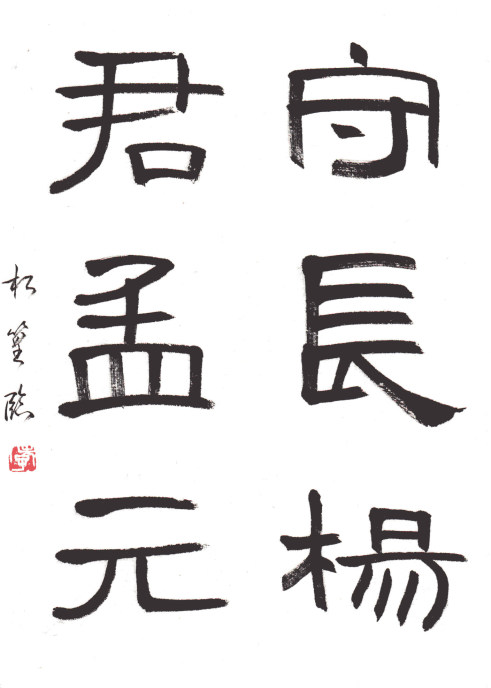 守長楊
君孟元
松篁臨